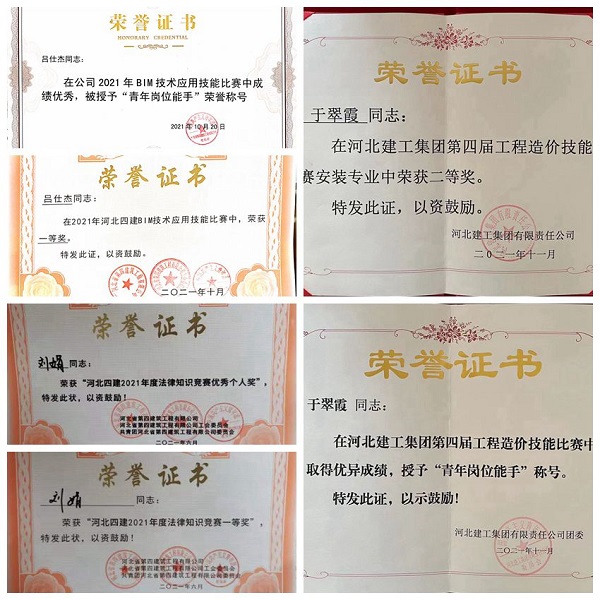 荣誉证书
HONORARY CREDENTIAL
吕仕杰同志:
在公司2021年BIM技术应用技能比赛中成
绩优秀，被授予“青年岗位能手”荣誉称号
2021年10月20日
荣誉证书
吕仕杰同志:
在2021年河北四建BIM技术应用技能比赛中，荣获
一等奖。
特发此证，以资鼓励。
二〇二一年十月
荣誉证书
刘娟 同志:
荣获“河北四建2021年度法律知识竞赛优秀个人奖”，
特发此状，以资鼓励!
河北省第四建筑工程有限公司
河北省第四建筑工程有限公司工会委员会
共青团河北省第四建筑工程有限公司委员会
二〇二一年六月
荣誉证书
刘娟 同志:
荣获“河北四建2021年度法律知识竞赛一等奖”，
特发此状，以资鼓励!
河北省第四建筑工程有限公司
河北省第四建筑工程有限公司工会委员会
共青团河北省第四建筑工程有限公司委员会
二〇二一年六月
荣誉证书
于翠霞 同志:
在河北建工集团第四届工程造价技能
赛安装专业中荣获二等奖。
特发此证，以资鼓励。
河北建工集团有限责任公司
二〇二一年十一月
荣誉证书
于翠霞 同志:
在河北建工集团第四届工程造价技能比赛中
取得优异成绩，授予“青年岗位能手”称号。
特发此证，以示鼓励!
河北建工集团有限责任公司团委
二〇二一年十一月